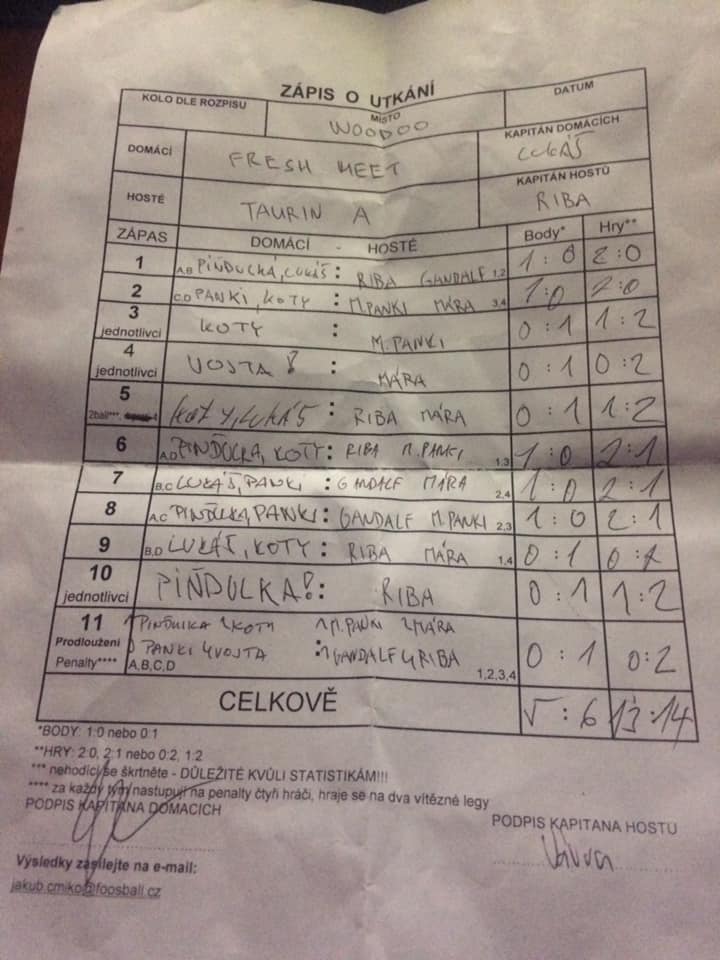 ZÁPIS O UTKÁNÍ
KOLO DLE ROZPISU MÍSTO WOODOO DATUM
DOMÁCÍ FRESH MEET KAPITÁN DOMÁCÍCH LUKÁŠ
HOSTÉ TAURIN A KAPITÁN HOSTŮ RIBA
ZÁPAS DOMÁCÍ - HOSTÉ Body* Hry**
1 A,B PIŇDUCKA, LUKÁŠ : RIBA GANDALF 1,2 1:0 2:0
2 C,D PANKI, KOTY : M.PANKI MÁRA 3,4 1:0 2:0
3 jednotlivci KOTY : M.PANKI 0:1 1:2
4 jednotlivci VOJTA ! : MÁRA 0:1 0:2
5 2ball***, KOTY, LUKÁŠ : RIBA MÁRA 0:1 1:2
6 A,D PINĎULKA, KOTY : RIBA M.PANKI 1,3 1:0 2:1
7 B,C LUKÁŠ, PANKI : GANDALF MÁRA 2,4 1:0 2:1
8 A,C PINĎULKA, PANKI : GANDALF M.PANKI 2,3 1:0 2:1
9 B,D LUKÁŠ, KOTY : RIBA MÁRA 1,4 0:1 0:2
10 jednotlivci PIŇDULKA! : RIBA 0:1 1:2
11 2KOTY 2MÁRA
Prodloužení PANKI 4VOJTA : GANDALF 4RIBA 0:1 0:2
Penalty**** A,B,C,D 1,2,3,4
CELKOVĚ 5:6 13:14
*BODY: 1:0 nebo 0:1
**HRY: 2:0, 2:1 nebo 0:2, 1:2
*** nehodící se škrtněte - DŮLEŽITÉ KVŮLI STATISTIKÁM!!!
**** za každý tým nastupují na penalty čtyři hráči, hraje se na dva vítězné legy
PODPIS KAPITÁNA DOMÁCÍCH PODPIS KAPITÁNA HOSTŮ
Výsledky zasílejte na e-mail:
jakub.cmiko@foosball.cz